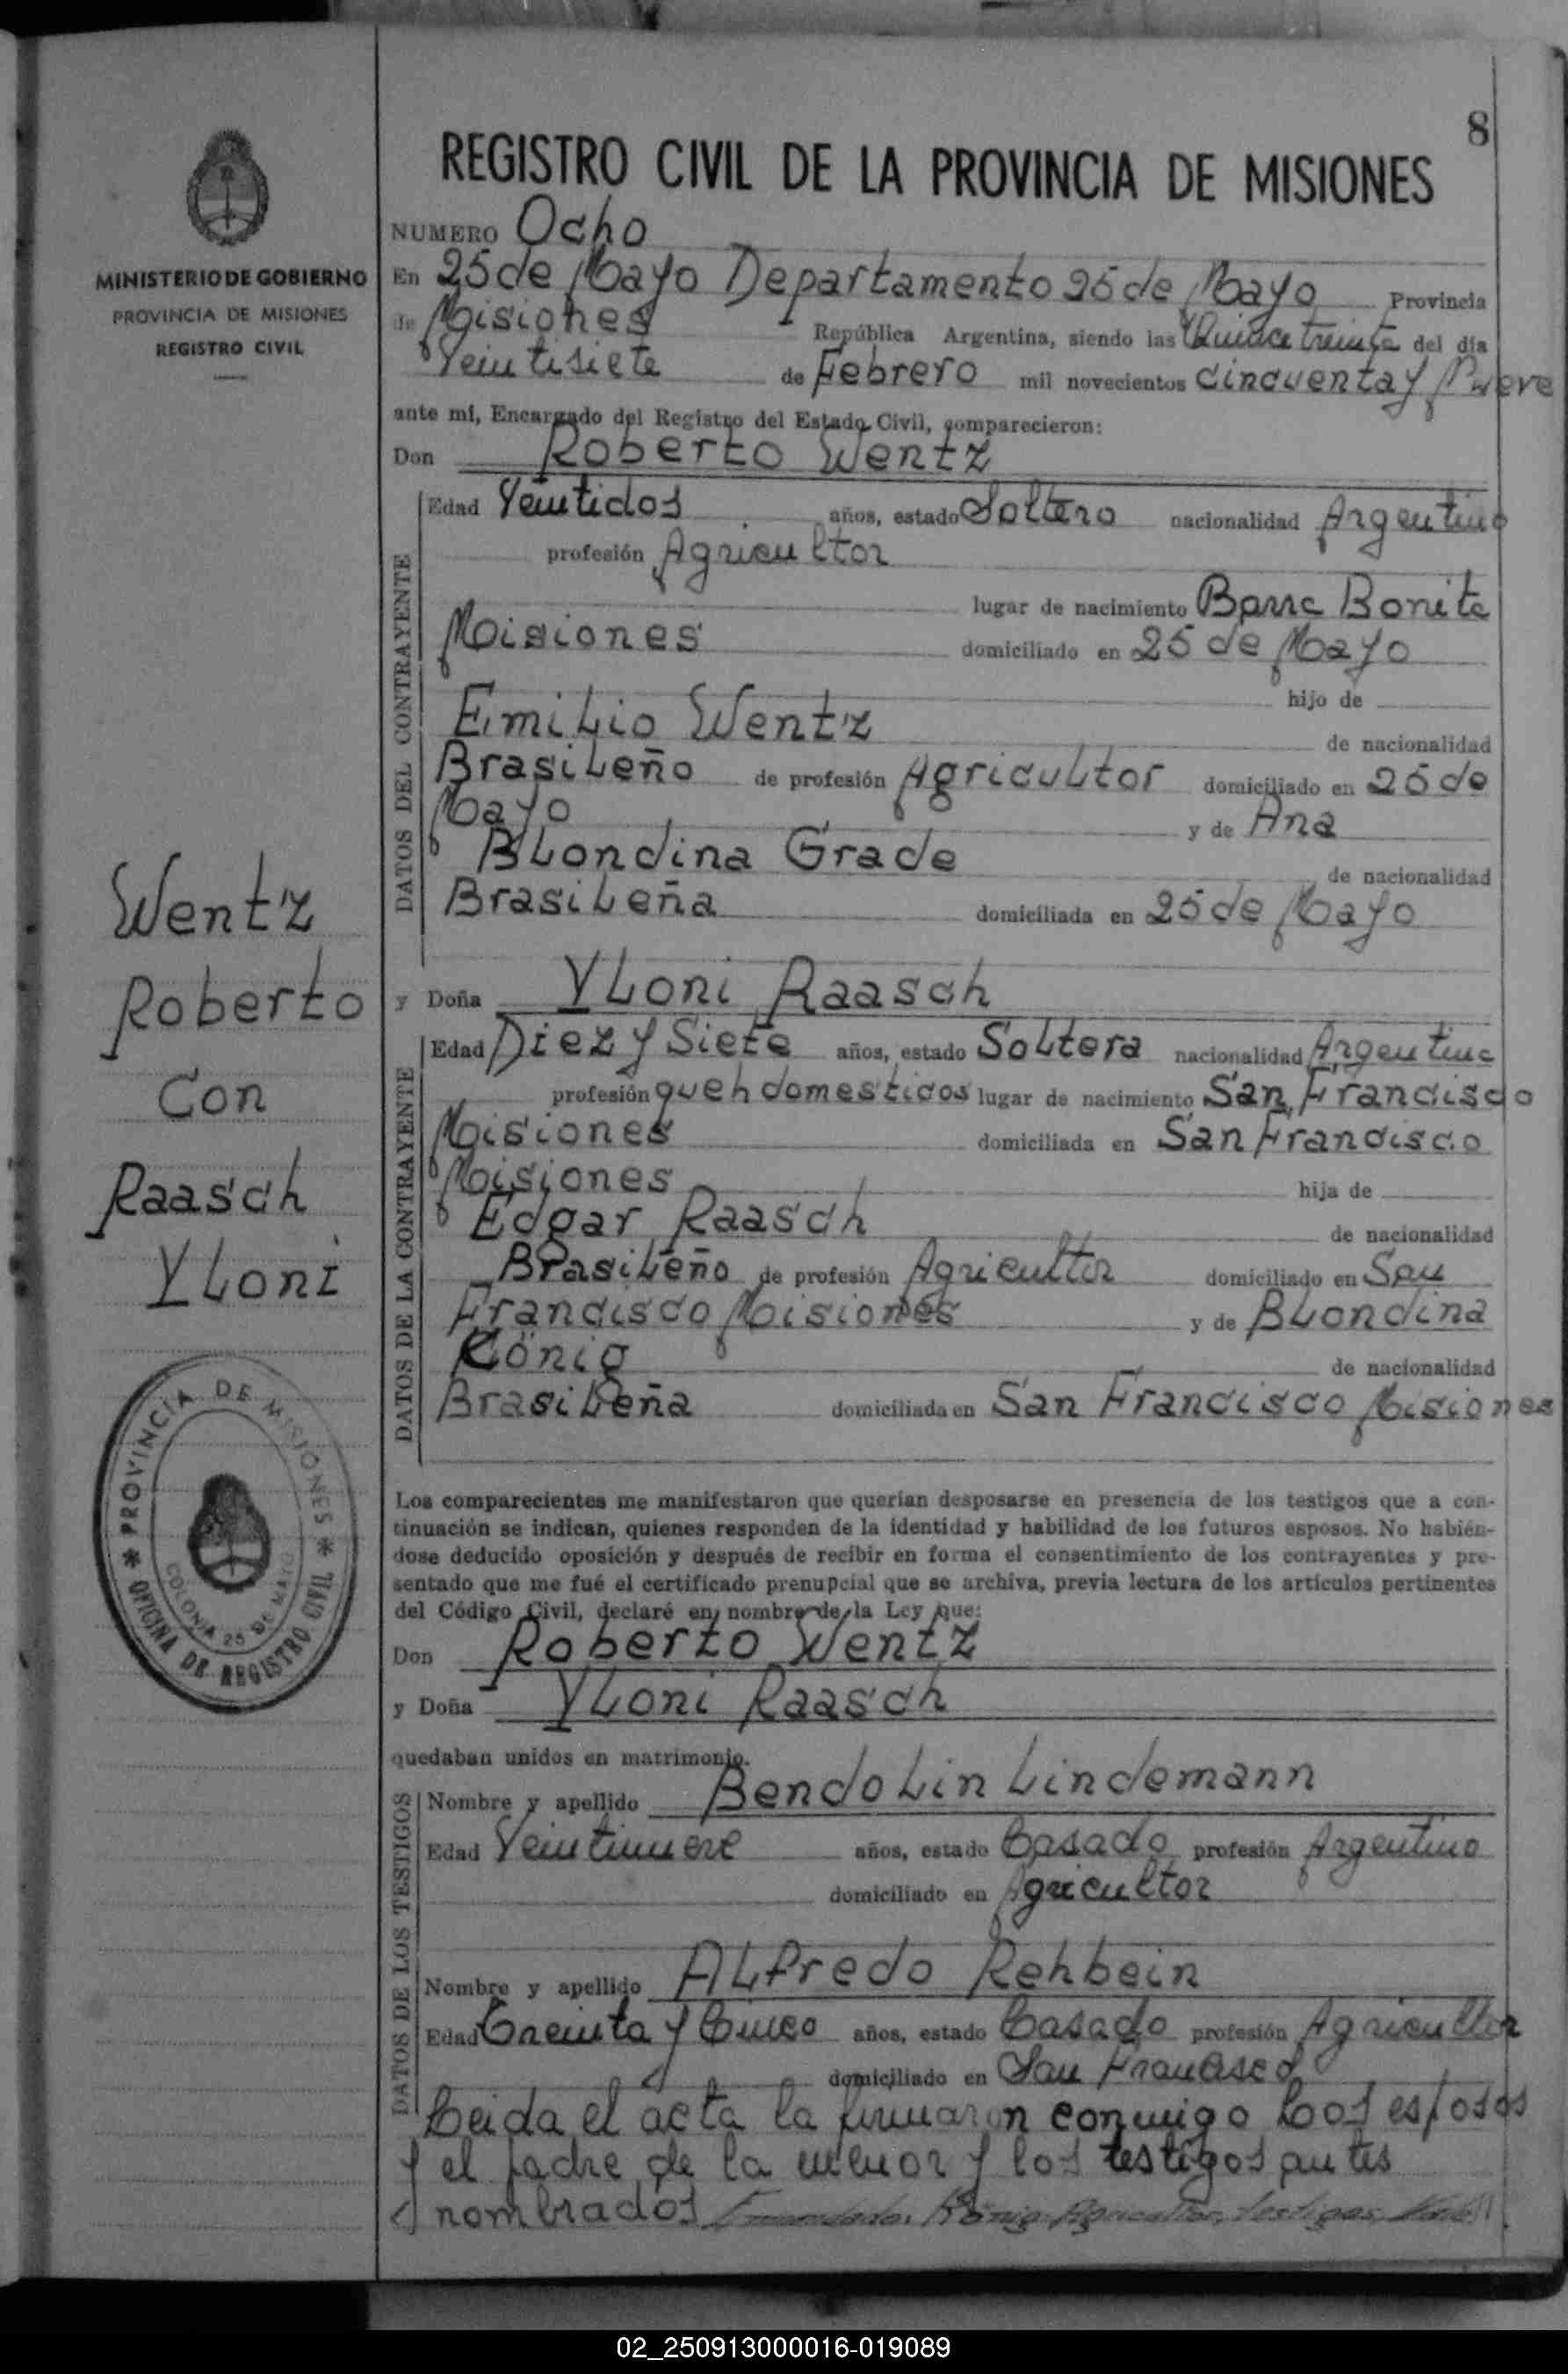 8
REGISTRO CIVIL DE LA PROVINCIA DE MISIONES
MINISTERIO DE GOBIERNO
PROVINCIA DE MISIONES
REGISTRO CIVIL
NUMERO Ocho
En 25 de Mayo Departamento 25 de Mayo Provincia
de Misiones República Argentina, siendo las Quince treinta del día
Veintisiete de Febrero mil novecientos cincuenta y Nueve
ante mí, Encargado del Registro del Estado Civil, comparecieron:
Don Roberto Wentz
DATOS DEL CONTRAYENTE
Edad Veintidos años, estado Soltero nacionalidad Argentino
profesión Agricultor
lugar de nacimiento Barra Bonita
Misiones domiciliado en 25 de Mayo
hijo de
Emilio Wentz de nacionalidad
Brasileño de profesión Agricultor domiciliado en 25 de
Mayo y de Ana
Blondina Grade de nacionalidad
Brasileña domiciliada en 25 de Mayo
y Doña Yloni Raasch
DATOS DE LA CONTRAYENTE
Edad Diez y Siete años, estado Soltera nacionalidad Argentina
profesión queh domesticos lugar de nacimiento San Francisco
Misiones domiciliada en San Francisco
Misiones hija de
Edgar Raasch de nacionalidad
Brasileño de profesión Agricultor domiciliado en San
Francisco Misiones y de Blondina
König de nacionalidad
Brasileña domiciliada en San Francisco Misiones
Wentz
Roberto
Con
Raasch
Yloni
PROVINCIA DE MISIONES
OFICINA DE REGISTRO CIVIL
COLONIA 25 DE MAYO
Los comparecientes me manifestaron que querían desposarse en presencia de los testigos que a con-
tinuación se indican, quienes responden de la identidad y habilidad de los futuros esposos. No habién-
dose deducido oposición y después de recibir en forma el consentimiento de los contrayentes y pre-
sentado que me fué el certificado prenupcial que se archiva, previa lectura de los artículos pertinentes
del Código Civil, declaré en nombre de la Ley que:
Don Roberto Wentz
y Doña Yloni Raasch
quedaban unidos en matrimonio.
DATOS DE LOS TESTIGOS
Nombre y apellido Bendolin Lindemann
Edad Veintinueve años, estado Casado profesión Argentino
domiciliado en Agricultor
Nombre y apellido Alfredo Rehbein
Edad Treinta y Cinco años, estado Casado profesión Agricultor
domiciliado en San Francisco
Leida el acta la firmaron conmigo Los esposos
y el padre de la menor y los testigos antes
nombrados Enmendado: König Agricultor, testigos
02_250913000016-019089